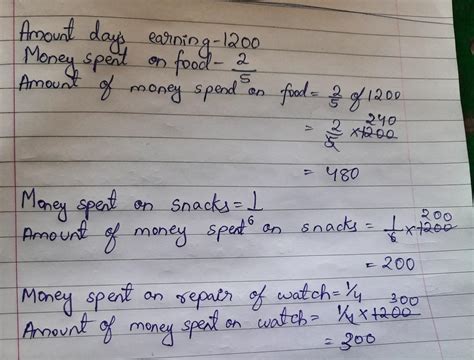 Amount days earning-1200
Money spent on food- 2/5
Amount of money spend on food = 2/5 of 1200
= 2/5 × 1200 240
= 480
Money spent on snacks = 1/6
Amount of money spent on snacks = 1/6 × 1200 200
= 200
Money spent on repair of watch = 1/4
Amount of money spent on watch = 1/4 × 1200 300
= 300